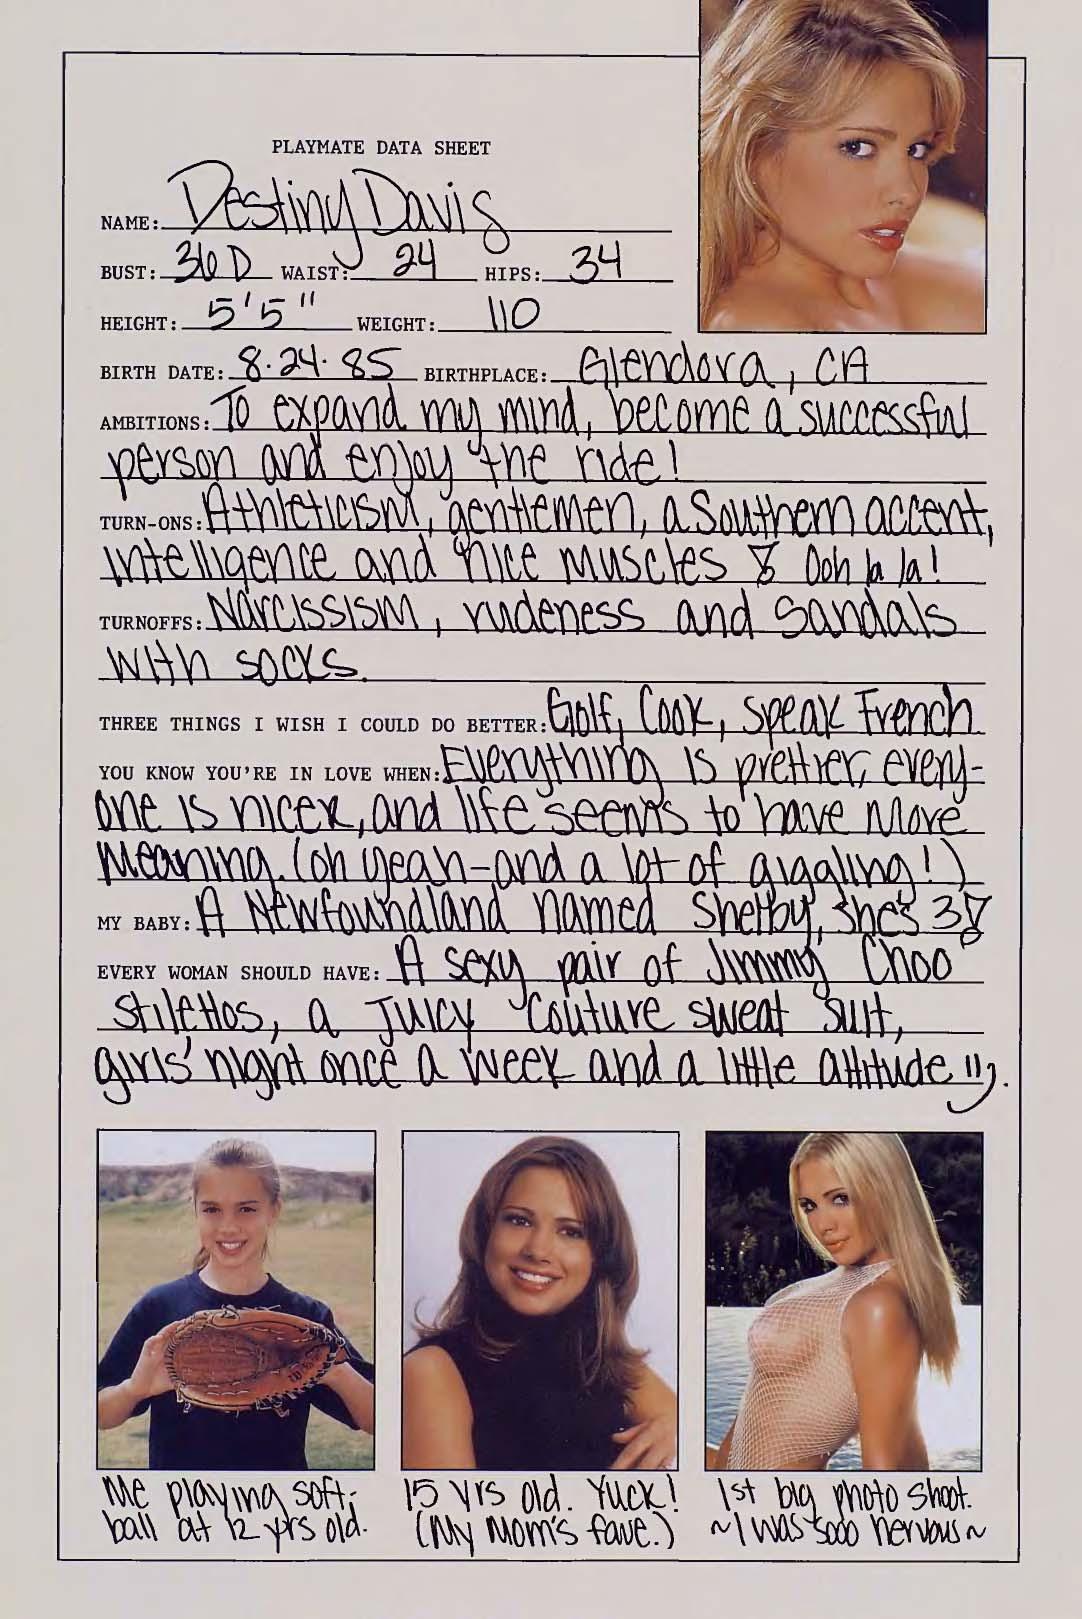 PLAYMATE DATA SHEET
NAME: Destiny Davis
BUST: 36D WAIST: 24 HIPS: 34
HEIGHT: 5'5" WEIGHT: 110
BIRTH DATE: 8.24.85 BIRTHPLACE: Glendora, CA
AMBITIONS: To expand my mind, become a successful
person and enjoy the ride!
TURN-ONS: Athleticism, gentlemen, a Southern accent,
intelligence and nice muscles & Ooh la la!
TURNOFFS: Narcissism, rudeness and sandals
with socks.
THREE THINGS I WISH I COULD DO BETTER: Golf, Cook, Speak French
YOU KNOW YOU'RE IN LOVE WHEN: Everything is prettier, every-
one is nicer, and life seems to have more
meaning. (oh yeah-and a lot of giggling!)
MY BABY: A Newfoundland named Shelby, she's 3!
EVERY WOMAN SHOULD HAVE: A sexy pair of Jimmy Choo
stilettos, a Juicy Couture sweat suit,
girls' night once a week and a little attitude ").
Me playing soft-
ball at 12 yrs old.
15 yrs old. Yuck!
(My Mom's fave.)
1st big photo shoot.
~I was sooo nervous~